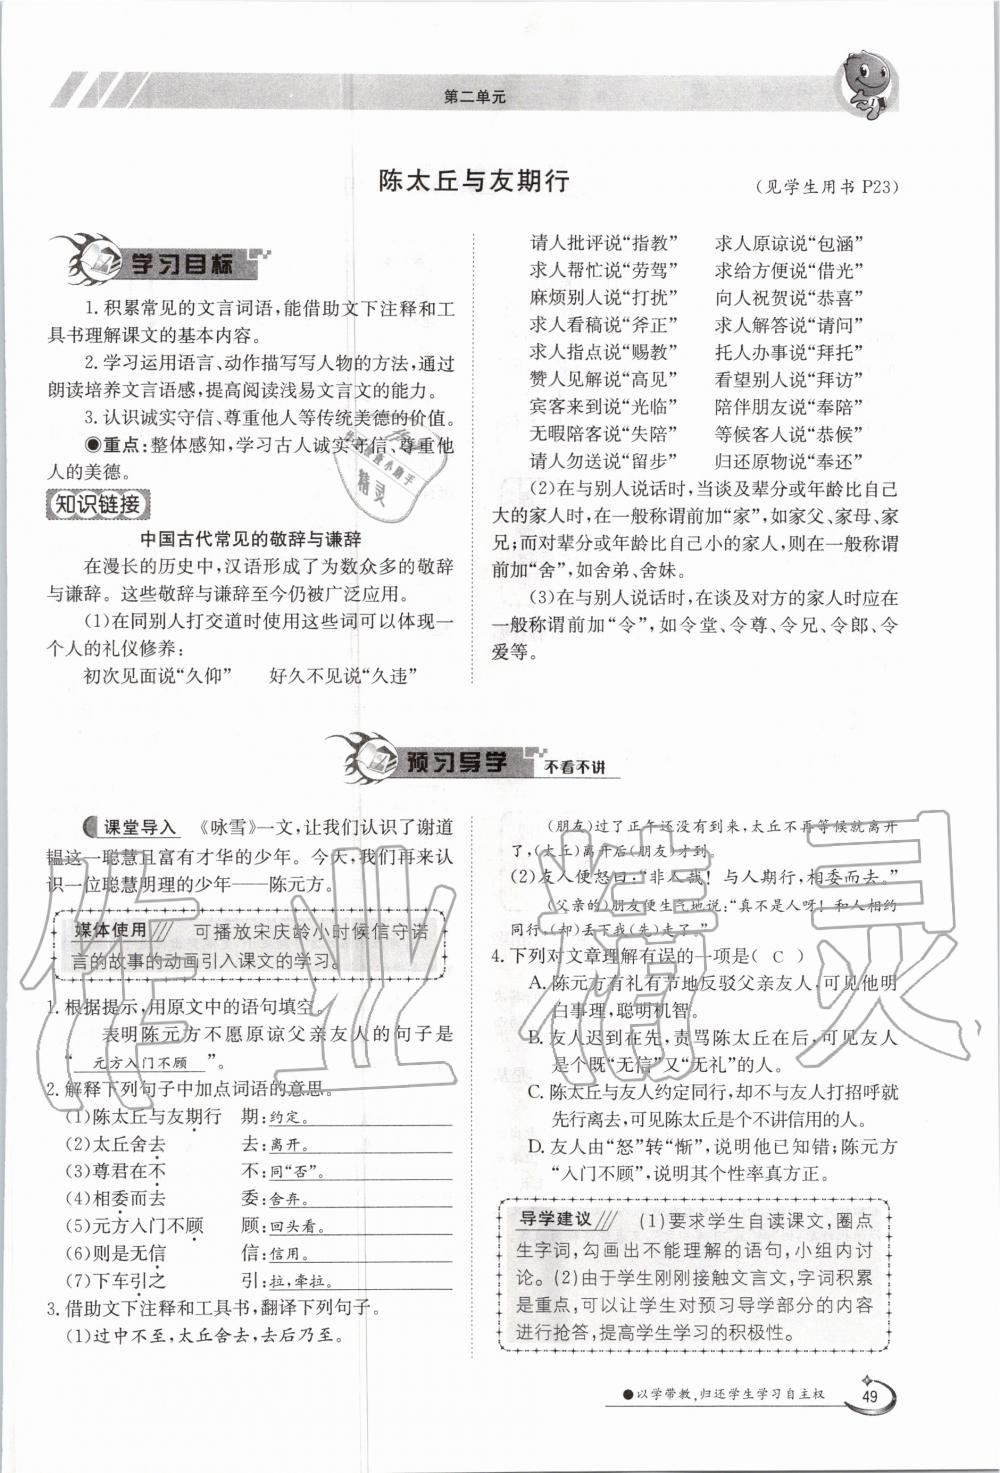 第二单元
陈太丘与友期行
(见学生用书 P23)
学习目标
1. 积累常见的文言词语,能借助文下注释和工
具书理解课文的基本内容。
2. 学习运用语言、动作描写写人物的方法,通过
朗读培养文言语感,提高阅读浅易文言文的能力。
3. 认识诚实守信、尊重他人等传统美德的价值。
●重点:整体感知,学习古人诚实守信、尊重他
人的美德。
知识链接
中国古代常见的敬辞与谦辞
在漫长的历史中,汉语形成了为数众多的敬辞
与谦辞。这些敬辞与谦辞至今仍被广泛应用。
(1)在同别人打交道时使用这些词可以体现一
个人的礼仪修养:
初次见面说“久仰” 好久不见说“久违”
请人批评说“指教” 求人原谅说“包涵”
求人帮忙说“劳驾” 求给方便说“借光”
麻烦别人说“打扰” 向人祝贺说“恭喜”
求人看稿说“斧正” 求人解答说“请问”
求人指点说“赐教” 托人办事说“拜托”
赞人见解说“高见” 看望别人说“拜访”
宾客来到说“光临” 陪伴朋友说“奉陪”
无暇陪客说“失陪” 等候客人说“恭候”
请人勿送说“留步” 归还原物说“奉还”
(2)在与别人说话时,当谈及辈分或年龄比自己
大的家人时,在一般称谓前加“家”,如家父、家母、家
兄;而对辈分或年龄比自己小的家人,则在一般称谓
前加“舍”,如舍弟、舍妹。
(3)在与别人说话时,在谈及对方的家人时应在
一般称谓前加“令”,如令堂、令尊、令兄、令郎、令
爱等。
预习导学 不看不讲
课堂导入 《咏雪》一文,让我们认识了谢道
韫这一聪慧且富有才华的少年。今天,我们再来认
识一位聪慧明理的少年——陈元方。
媒体使用 可播放宋庆龄小时候信守诺
言的故事的动画引入课文的学习。
1. 根据提示,用原文中的语句填空。
表明陈元方不愿原谅父亲友人的句子是
“ 元方入门不顾 ”。
2. 解释下列句子中加点词语的意思。
(1)陈太丘与友期行 期:约定。
(2)太丘舍去 去:离开。
(3)尊君在不 不:同“否”。
(4)相委而去 委:舍弃。
(5)元方入门不顾 顾:回头看。
(6)则是无信 信:信用。
(7)下车引之 引:拉,牵拉。
3. 借助文下注释和工具书,翻译下列句子。
(1)过中不至,太丘舍去,去后乃至。
(朋友)过了正午还没有到来,太丘不再等候就离开
了,(太丘)离开后(朋友)才到。
(2)友人便怒曰:“非人哉!与人期行,相委而去。”
(父亲的)朋友便生气地说:“真不是人呀!和人相约
同行,(却)丢下我(先)走了。”
4. 下列对文章理解有误的一项是( C )
A. 陈元方有礼有节地反驳父亲友人,可见他明
白事理,聪明机智。
B. 友人迟到在先,责骂陈太丘在后,可见友人
是个既“无信”又“无礼”的人。
C. 陈太丘与友人约定同行,却不与友人打招呼就
先行离去,可见陈太丘是个不讲信用的人。
D. 友人由“怒”转“惭”,说明他已知错;陈元方
“入门不顾”,说明其个性率真方正。
导学建议 (1)要求学生自读课文,圈点
生字词,勾画出不能理解的语句,小组内讨
论。(2)由于学生刚刚接触文言文,字词积累
是重点,可以让学生对预习导学部分的内容
进行抢答,提高学生学习的积极性。
●以学带教,归还学生学习自主权
49
作业精灵